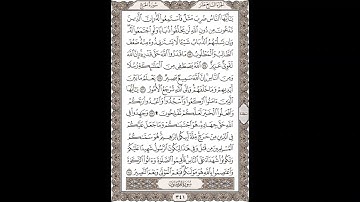 سُورَةُ الحَجِّ الجُزْءُ السَّابِعَ عَشَرَ
يَٰٓأَيُّهَا ٱلنَّاسُ ضُرِبَ مَثَلٌ فَٱسْتَمِعُوا۟ لَهُۥٓ إِنَّ ٱلَّذِينَ
تَدْعُونَ مِن دُونِ ٱللَّهِ لَن يَخْلُقُوا۟ ذُبَابًا وَلَوِ ٱجْتَمَعُوا۟ لَهُۥ
وَإِن يَسْلُبْهُمُ ٱلذُّبَابُ شَيْـًٔا لَّا يَسْتَنقِذُوهُ مِنْهُ ضَعُفَ
ٱلطَّالِبُ وَٱلْمَطْلُوبُ ٧٣ مَا قَدَرُوا۟ ٱللَّهَ حَقَّ قَدْرِهِۦٓ إِنَّ ٱللَّهَ
لَقَوِىٌّ عَزِيزٌ ٧٤ ٱللَّهُ يَصْطَفِى مِنَ ٱلْمَلَٰٓئِكَةِ رُسُلًا
وَمِنَ ٱلنَّاسِ إِنَّ ٱللَّهَ سَمِيعٌۢ بَصِيرٌ ٧٥ يَعْلَمُ مَا بَيْنَ
أَيْدِيهِمْ وَمَا خَلْفَهُمْ وَإِلَى ٱللَّهِ تُرْجَعُ ٱلْأُمُورُ ٧٦
يَٰٓأَيُّهَا ٱلَّذِينَ ءَامَنُوا۟ ٱرْكَعُوا۟ وَٱسْجُدُوا۟ وَٱعْبُدُوا۟ رَبَّكُمْ
وَٱفْعَلُوا۟ ٱلْخَيْرَ لَعَلَّكُمْ تُفْلِحُونَ ۩ ٧٧ وَجَٰهِدُوا۟ فِى
ٱللَّهِ حَقَّ جِهَادِهِۦ هُوَ ٱجْتَبَىٰكُمْ وَمَا جَعَلَ عَلَيْكُمْ
فِى ٱلدِّينِ مِنْ حَرَجٍ مِّلَّةَ أَبِيكُمْ إِبْرَٰهِيمَ هُوَ سَمَّىٰكُمُ
ٱلْمُسْلِمِينَ مِن قَبْلُ وَفِى هَٰذَا لِيَكُونَ ٱلرَّسُولُ شَهِيدًا عَلَيْكُمْ
وَتَكُونُوا۟ شُهَدَآءَ عَلَى ٱلنَّاسِ فَأَقِيمُوا۟ ٱلصَّلَوٰةَ وَءَاتُوا۟ ٱلزَّكَوٰةَ
وَٱعْتَصِمُوا۟ بِٱللَّهِ هُوَ مَوْلَىٰكُمْ فَنِعْمَ ٱلْمَوْلَىٰ وَنِعْمَ ٱلنَّصِيرُ ٧٨
سُورَةُ المُؤْمِنُونَ
٣٤١